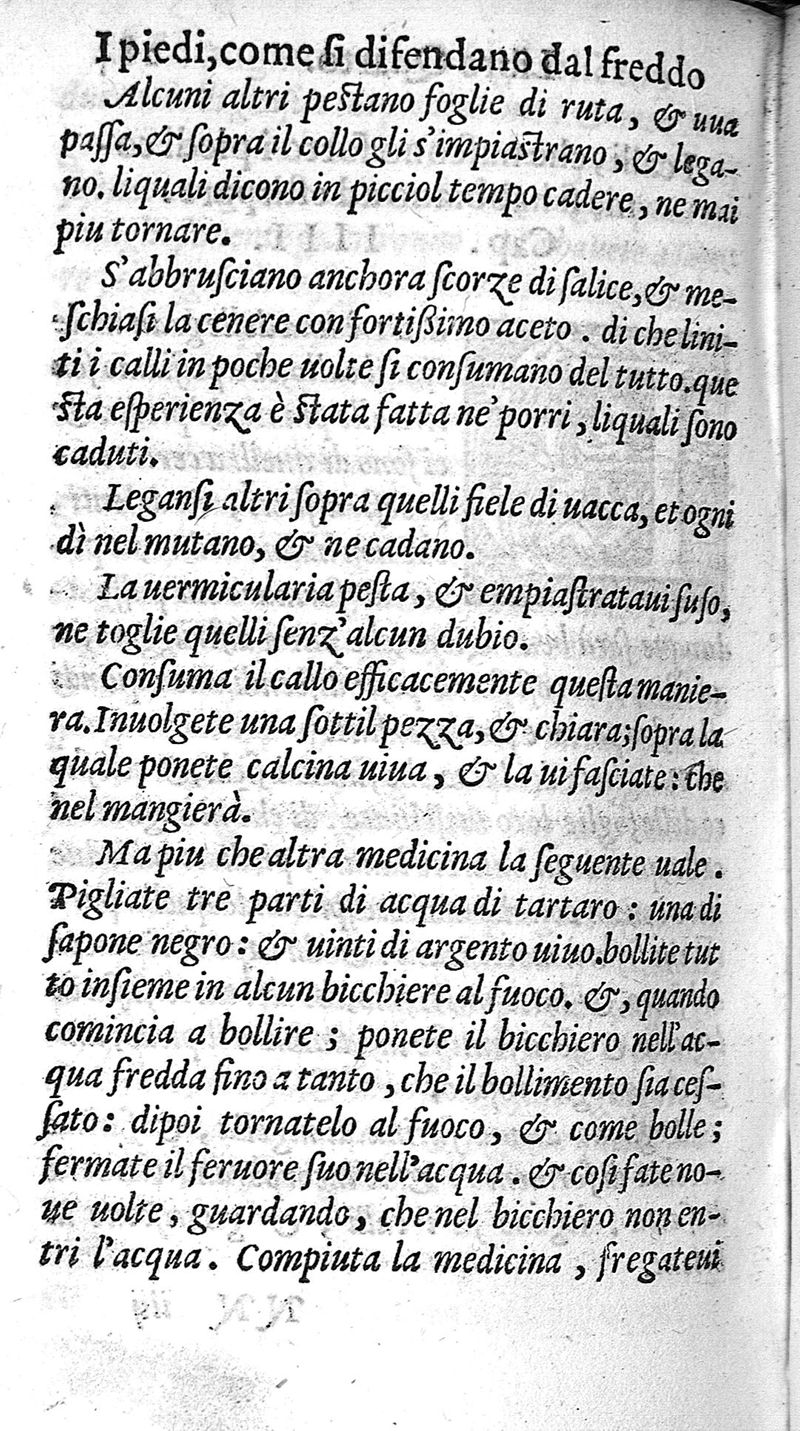 I piedi, come ſi difendano dal freddo
Alcuni altri peſtano foglie di ruta, & uua
paſſa, & ſopra il collo gli s'impiaſtrano, & lega-
no. liquali dicono in picciol tempo cadere, ne mai
piu tornare.
S'abbruſciano anchora ſcorze di ſalice, & me-
ſchiaſi la cenere con fortißimo aceto. di che lini-
ti i calli in poche uolte ſi conſumano del tutto. que
ſta eſperienza è ſtata fatta ne' porri, liquali ſono
caduti.
Leganſi altri ſopra quelli fiele di uacca, et ogni
dì nel mutano, & ne cadano.
La uermicularia peſta, & empiaſtrataui ſuſo,
ne toglie quelli ſenz'alcun dubio.
Conſuma il callo efficacemente queſta manie-
ra. Inuolgete una ſottil pezza, & chiara; ſopra la
quale ponete calcina uiua, & la ui faſciate: che
nel mangierà.
Ma piu che altra medicina la ſeguente uale.
Pigliate tre parti di acqua di tartaro: una di
ſapone negro: & uinti di argento uiuo. bollite tut
to inſieme in alcun bicchiere al fuoco. &, quando
comincia a bollire; ponete il bicchiero nell'ac-
qua fredda fino a tanto, che il bollimento ſia ceſ-
ſato: dipoi tornatelo al fuoco, & come bolle;
fermate il feruore ſuo nell'acqua. & coſi fate no-
ue uolte, guardando, che nel bicchiero non en-
tri l'acqua. Compiuta la medicina, fregateui